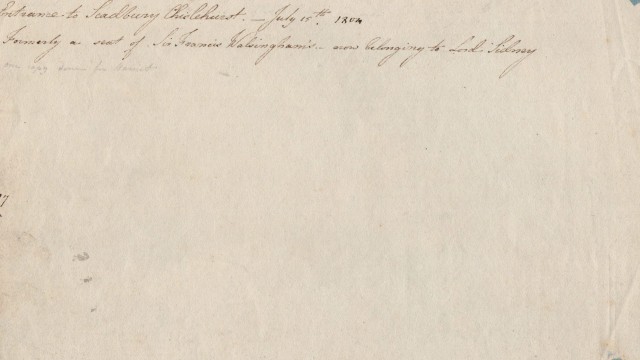 Entrance to Scadbury Chislehurst. — July 15th 1804
Formerly a seat of Sir Francis Walsingham's — now belonging to Lord Sidney
7